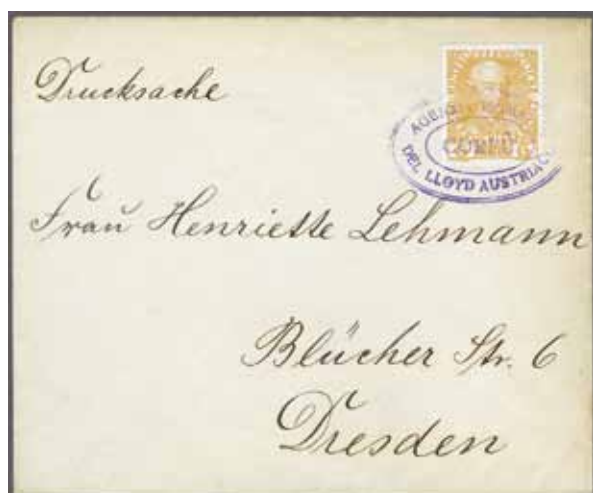 Drucksache
DEL LLOYD AUSTRIACO
CORFU
Frau Henriette Lehmann
Blücher Str. 6
Dresden